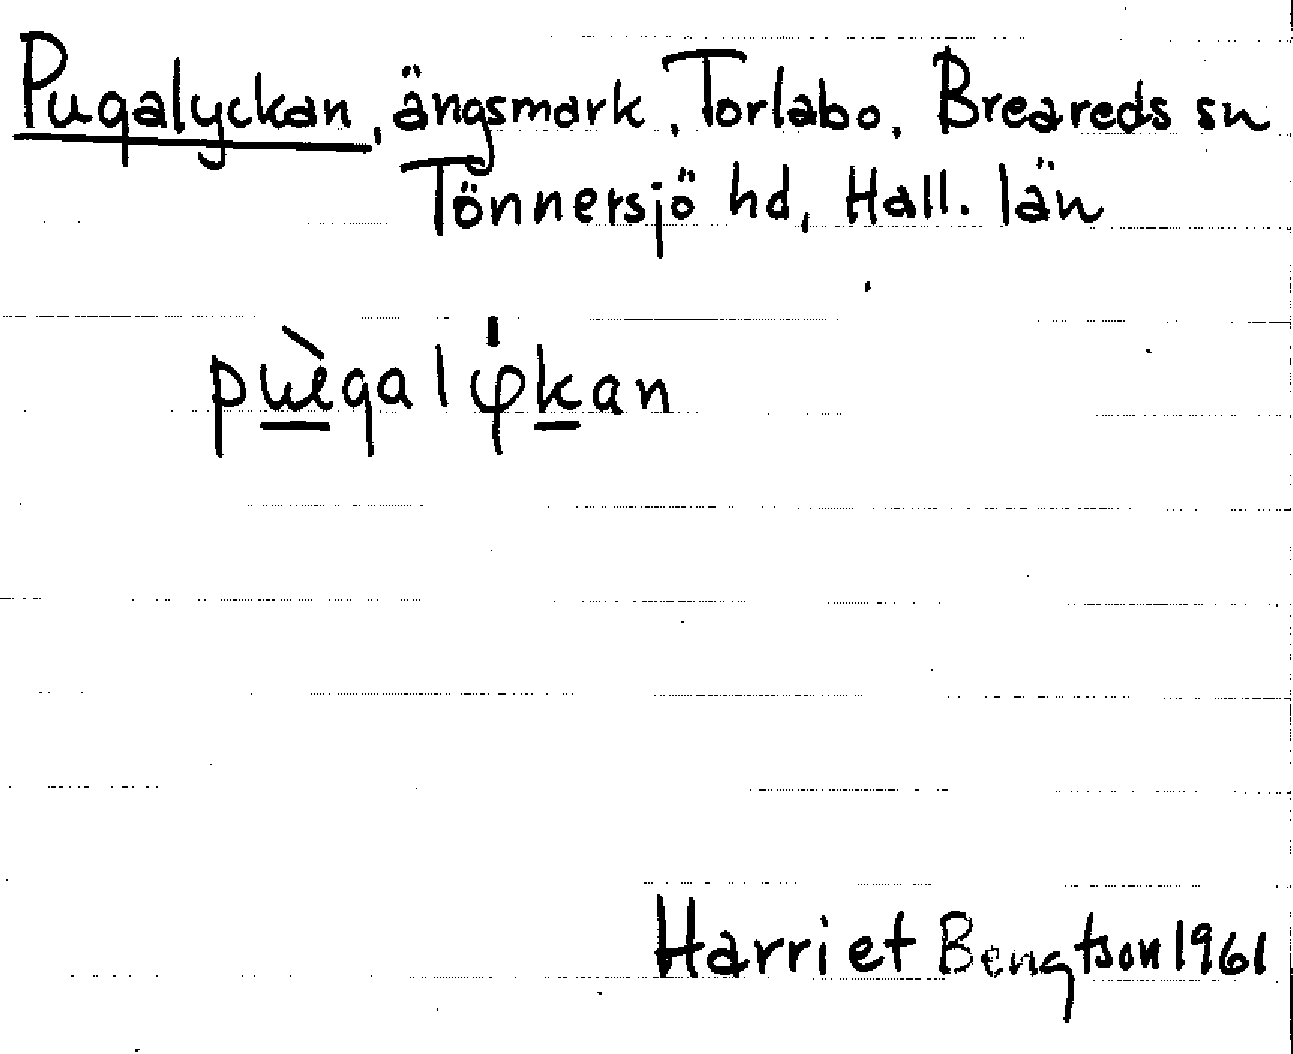 Pugalyckan, ängsmark, Torlabo, Breareds sn
Tönnersjö hd, Hall. län
Harriet Bengtson 1961